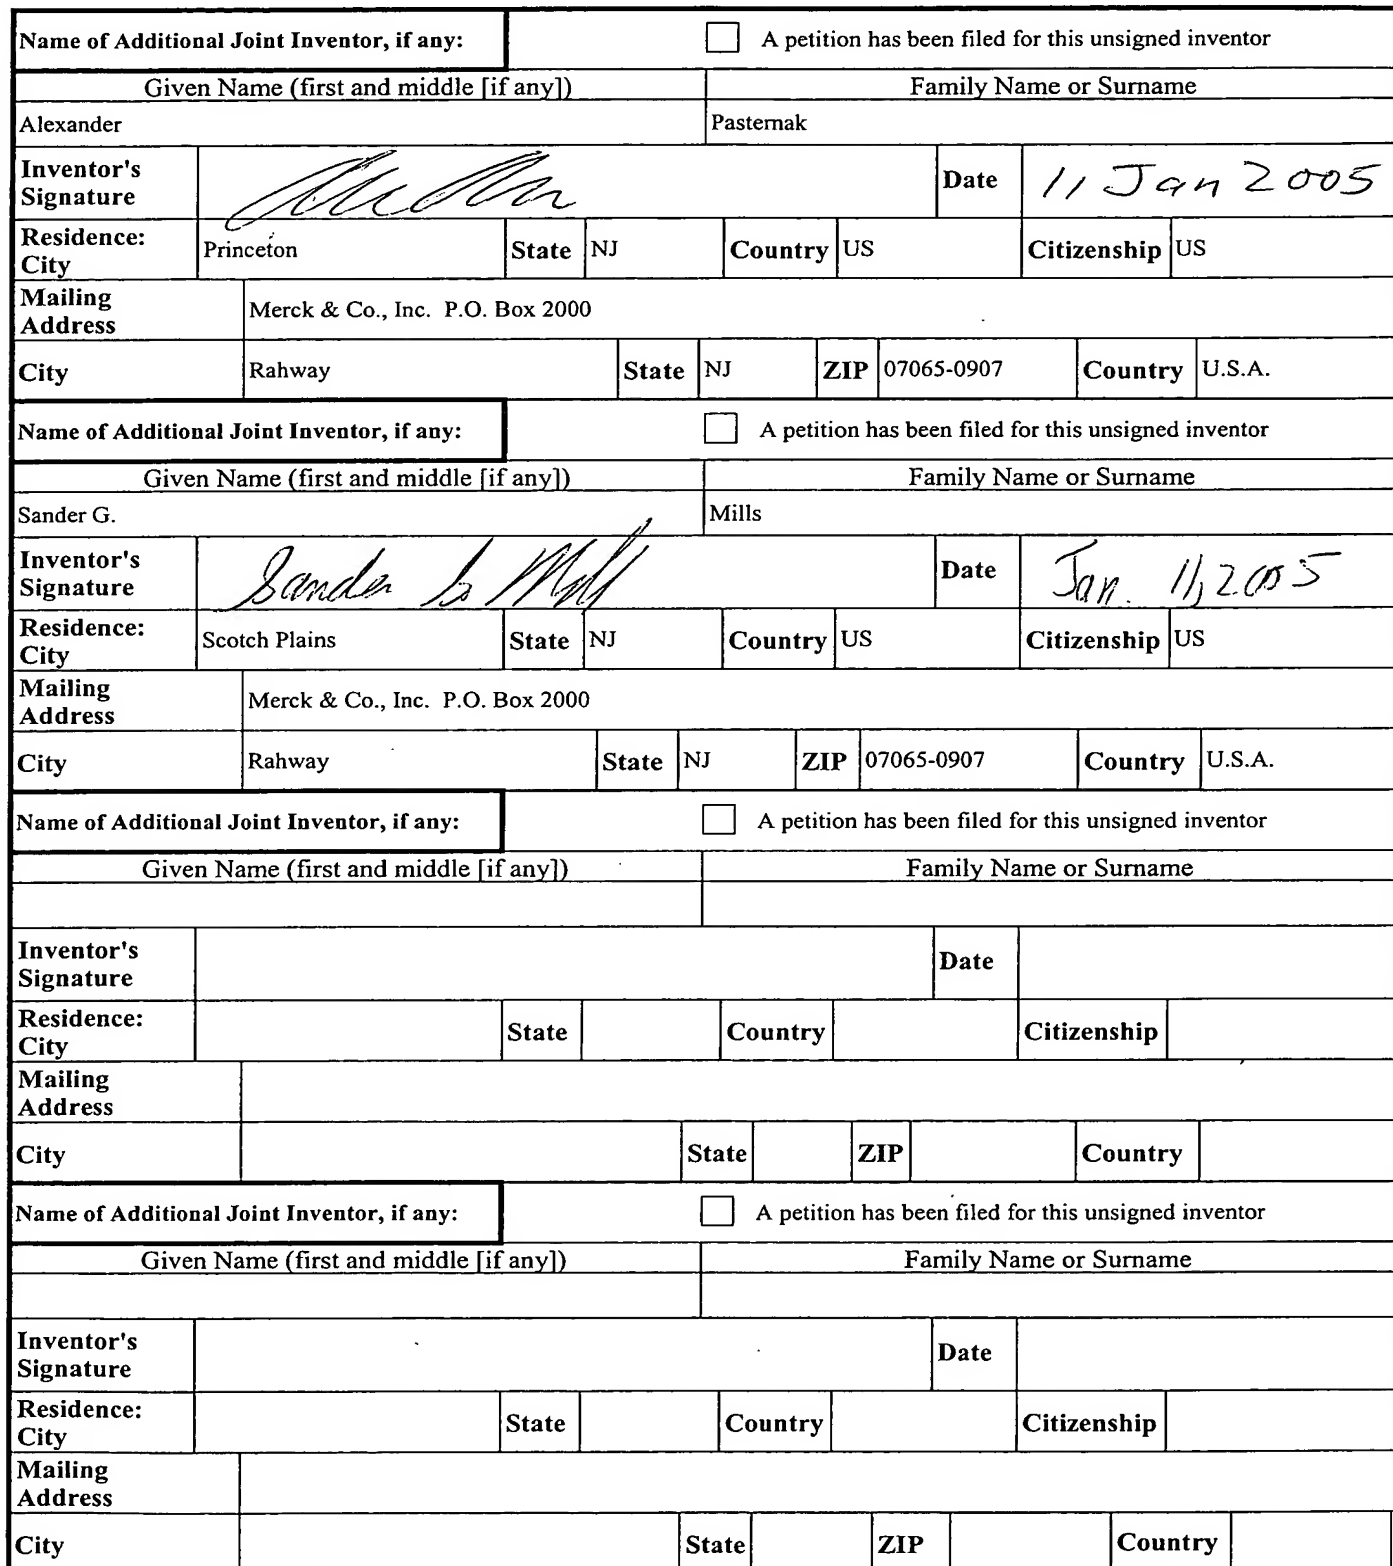 Name of Additional Joint Inventor, if any: A petition has been filed for this unsigned inventor
Given Name (first and middle [if any]) Family Name or Surname
Alexander Pasternak
Inventor's Signature Date 11 Jan 2005
Residence: City Princeton State NJ Country US Citizenship US
Mailing Address Merck & Co., Inc. P.O. Box 2000
City Rahway State NJ ZIP 07065-0907 Country U.S.A.
Name of Additional Joint Inventor, if any: A petition has been filed for this unsigned inventor
Given Name (first and middle [if any]) Family Name or Surname
Sander G. Mills
Inventor's Signature Sander G Mills Date Jan. 11, 2005
Residence: City Scotch Plains State NJ Country US Citizenship US
Mailing Address Merck & Co., Inc. P.O. Box 2000
City Rahway State NJ ZIP 07065-0907 Country U.S.A.
Name of Additional Joint Inventor, if any: A petition has been filed for this unsigned inventor
Given Name (first and middle [if any]) Family Name or Surname
Inventor's Signature Date
Residence: City State Country Citizenship
Mailing Address
City State ZIP Country
Name of Additional Joint Inventor, if any: A petition has been filed for this unsigned inventor
Given Name (first and middle [if any]) Family Name or Surname
Inventor's Signature Date
Residence: City State Country Citizenship
Mailing Address
City State ZIP Country